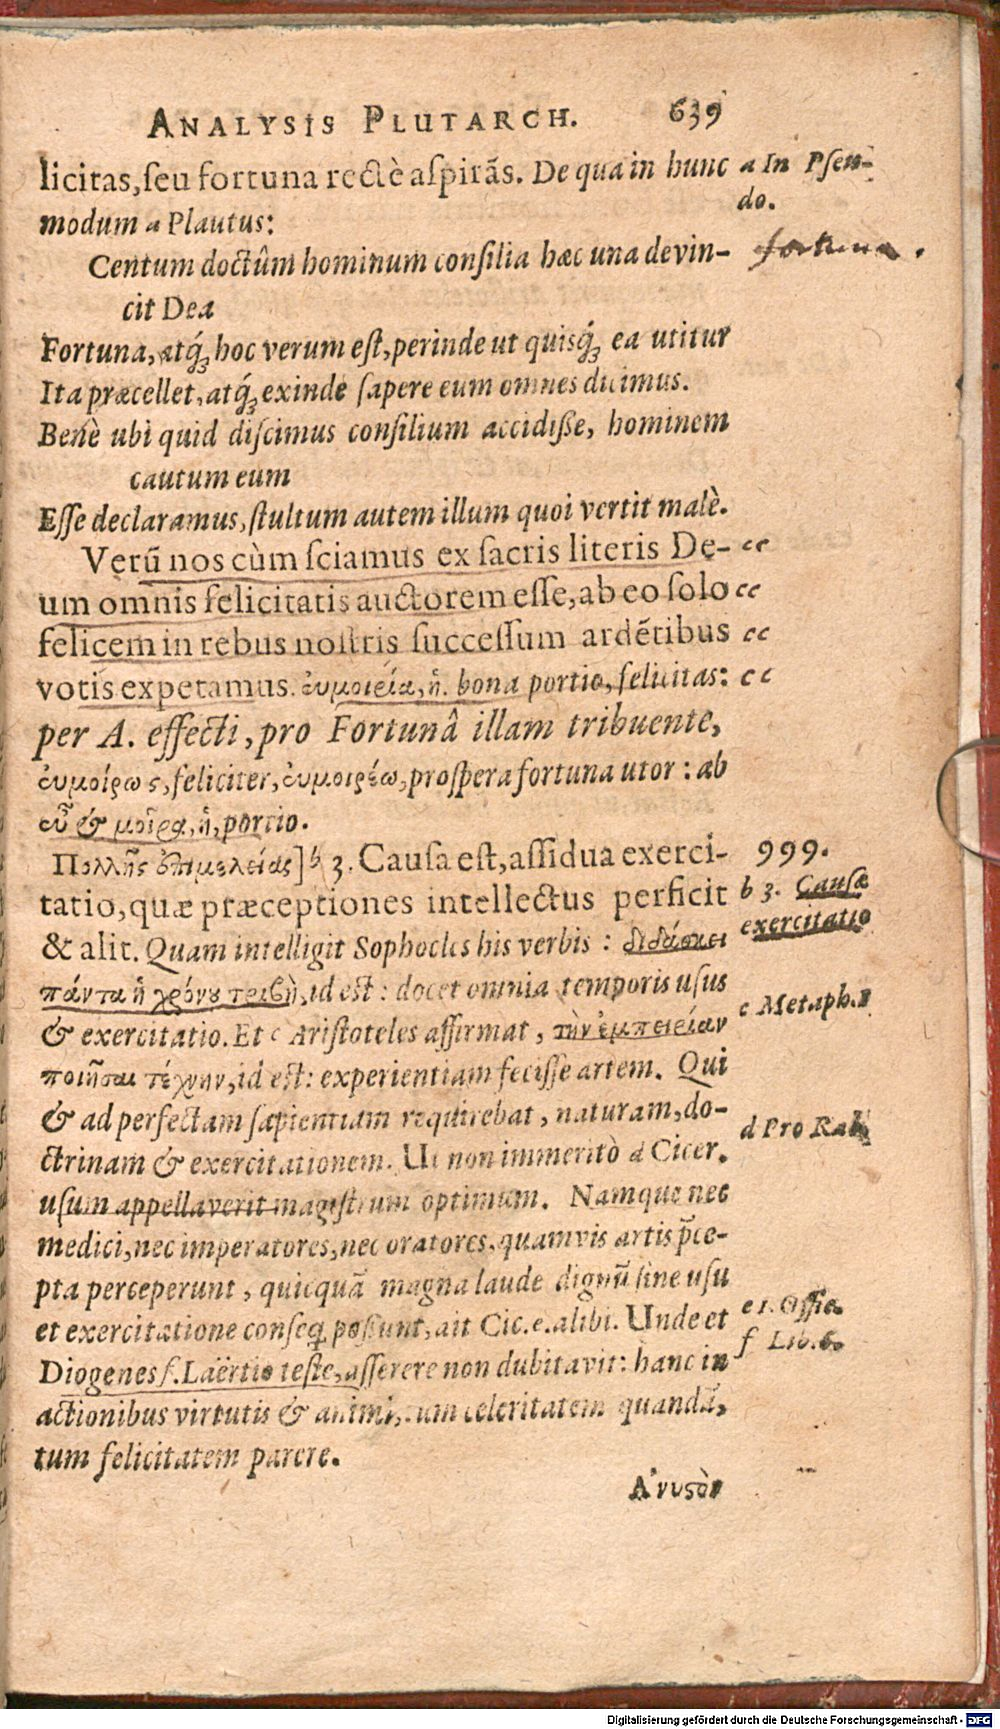 ANALYSIS PLUTARCH. 639
licitas, seu fortuna rectè aspirãs. De qua in hunc a In Pseu-
modum a Plautus: do.
Centum doctûm hominum consilia hæc una devin- fortuna.
cit Dea
Fortuna, atq́ꝫ hoc verum est, perinde ut quisq́ꝫ ea utitur
Ita præcellet, atq́ꝫ exinde sapere eum omnes dicimus.
Benè ubi quid discimus consilium accidisse, hominem
cautum eum
Esse declaramus, stultum autem illum quoi vertit malè.
Verũ nos cùm sciamus ex sacris literis De- cc
um omnis felicitatis auctorem esse, ab eo solo cc
felicem in rebus nostris successum ardẽtibus cc
votis expetamus. ἐυμοιρία, ἡ. bona portio, felicitas: cc
per A. effecti, pro Fortunâ illam tribuente,
ἐυμοίρως, feliciter, ἐυμοιρέω, prospera fortuna utor: ab
εὖ & μοῖρα, ἡ, portio.
Πολλῆς ἐπιμελείας] b 3. Causa est, assidua exerci- 999.
tatio, quæ præceptiones intellectus perficit b 3. Causæ
& alit. Quam intelligit Sophocles his verbis: διδάσκει exercitatio
πάντα ἡ χρόνου τριβὴ, id est: docet omnia temporis usus
& exercitatio. Et c Aristoteles affirmat, τὴν ἐμπειρίαν c Metaph. 1
ποιῆσαι τέχνην, id est: experientiam fecisse artem. Qui
& ad perfectam sapientiam requirebat, naturam, do-
ctrinam & exercitationem. Ut non immeritò d Cicer. d Pro Rab
usum appellaverit magistrum optimum. Namque nec
medici, nec imperatores, nec oratores, quamvis artis p̄ce-
pta perceperunt, quicquã magna laude dignũ sine usu
et exercitatione conseq̃ possunt, ait Cic. e. alibi. Unde et e 1. Offic.
Diogenes f. Laërtio teste, asserere non dubitavit: hanc in f Lib. 6.
actionibus virtutis & animi, tum celeritatem quandã,
tum felicitatem parere.
Α᾿νυσὸν
Digitalisierung gefördert durch die Deutsche Forschungsgemeinschaft - DFG